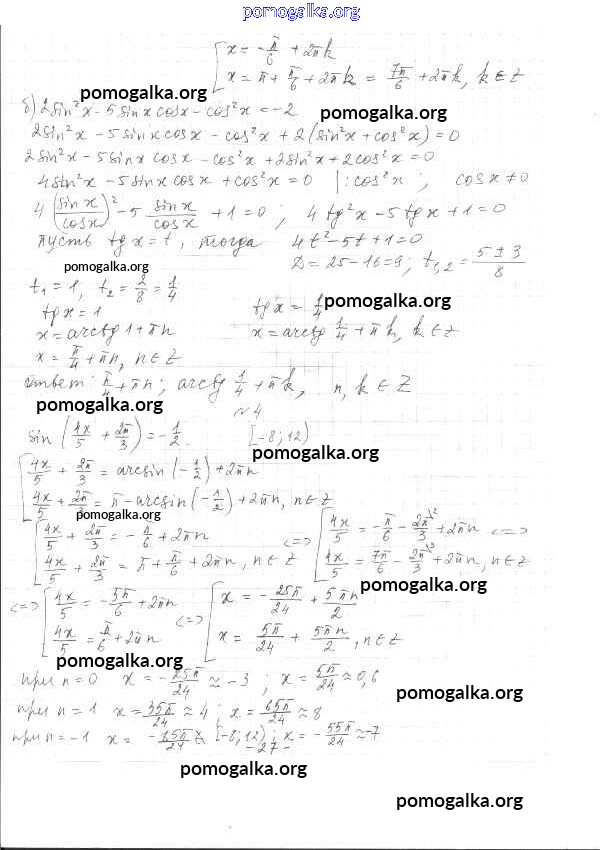 pomogalka.org
[ x = -π/6 + 2πk
x = π + π/6 + 2πk = 7π/6 + 2πk, k ∈ Z
pomogalka.org
б) 2sin²x - 5sinx cosx - cos²x = -2
pomogalka.org
2sin²x - 5sinx cosx - cos²x + 2(sin²x + cos²x) = 0
2sin²x - 5sinx cosx - cos²x + 2sin²x + 2cos²x = 0
4sin²x - 5sinx cosx + cos²x = 0 |: cos²x ; cosx ≠ 0
4(sinx/cosx)² - 5 sinx/cosx + 1 = 0 ; 4tg²x - 5tgx + 1 = 0
пусть tgx = t, тогда 4t² - 5t + 1 = 0
pomogalka.org D = 25 - 16 = 9; t₁,₂ = (5 ± 3)/8
t₁ = 1, t₂ = 2/8 = 1/4
tgx = 1 tgx = 1/4 pomogalka.org
x = arctg1 + πn x = arctg 1/4 + πk, k ∈ Z
x = π/4 + πn, n ∈ Z
ответ: π/4 + πn; arctg 1/4 + πk, n, k ∈ Z
pomogalka.org
№4
sin(4x/5 + 2π/3) = -1/2. [-8; 12)
pomogalka.org
[ 4x/5 + 2π/3 = arcsin(-1/2) + 2πn
4x/5 + 2π/3 = π - arcsin(-1/2) + 2πn, n ∈ Z
pomogalka.org
[ 4x/5 + 2π/3 = -π/6 + 2πn <=> [ 4x/5 = -π/6 - 2π/3 + 2πn <=>
4x/5 + 2π/3 = π + π/6 + 2πn, n ∈ Z 4x/5 = 7π/6 - 2π/3 + 2πn, n ∈ Z
pomogalka.org
<=> [ 4x/5 = -5π/6 + 2πn <=> [ x = -25π/24 + 5πn/2
4x/5 = π/6 + 2πn x = 5π/24 + 5πn/2, n ∈ Z
pomogalka.org
при n = 0 x = -25π/24 ≈ -3 ; x = 5π/24 ≈ 0,6
pomogalka.org
при n = 1 x = 35π/24 ≈ 4 ; x = 65π/24 ≈ 8
при n = -1 x = -85π/24 [-8; 12) ; x = -55π/24 ≈ -7
- 27 -
pomogalka.org
pomogalka.org